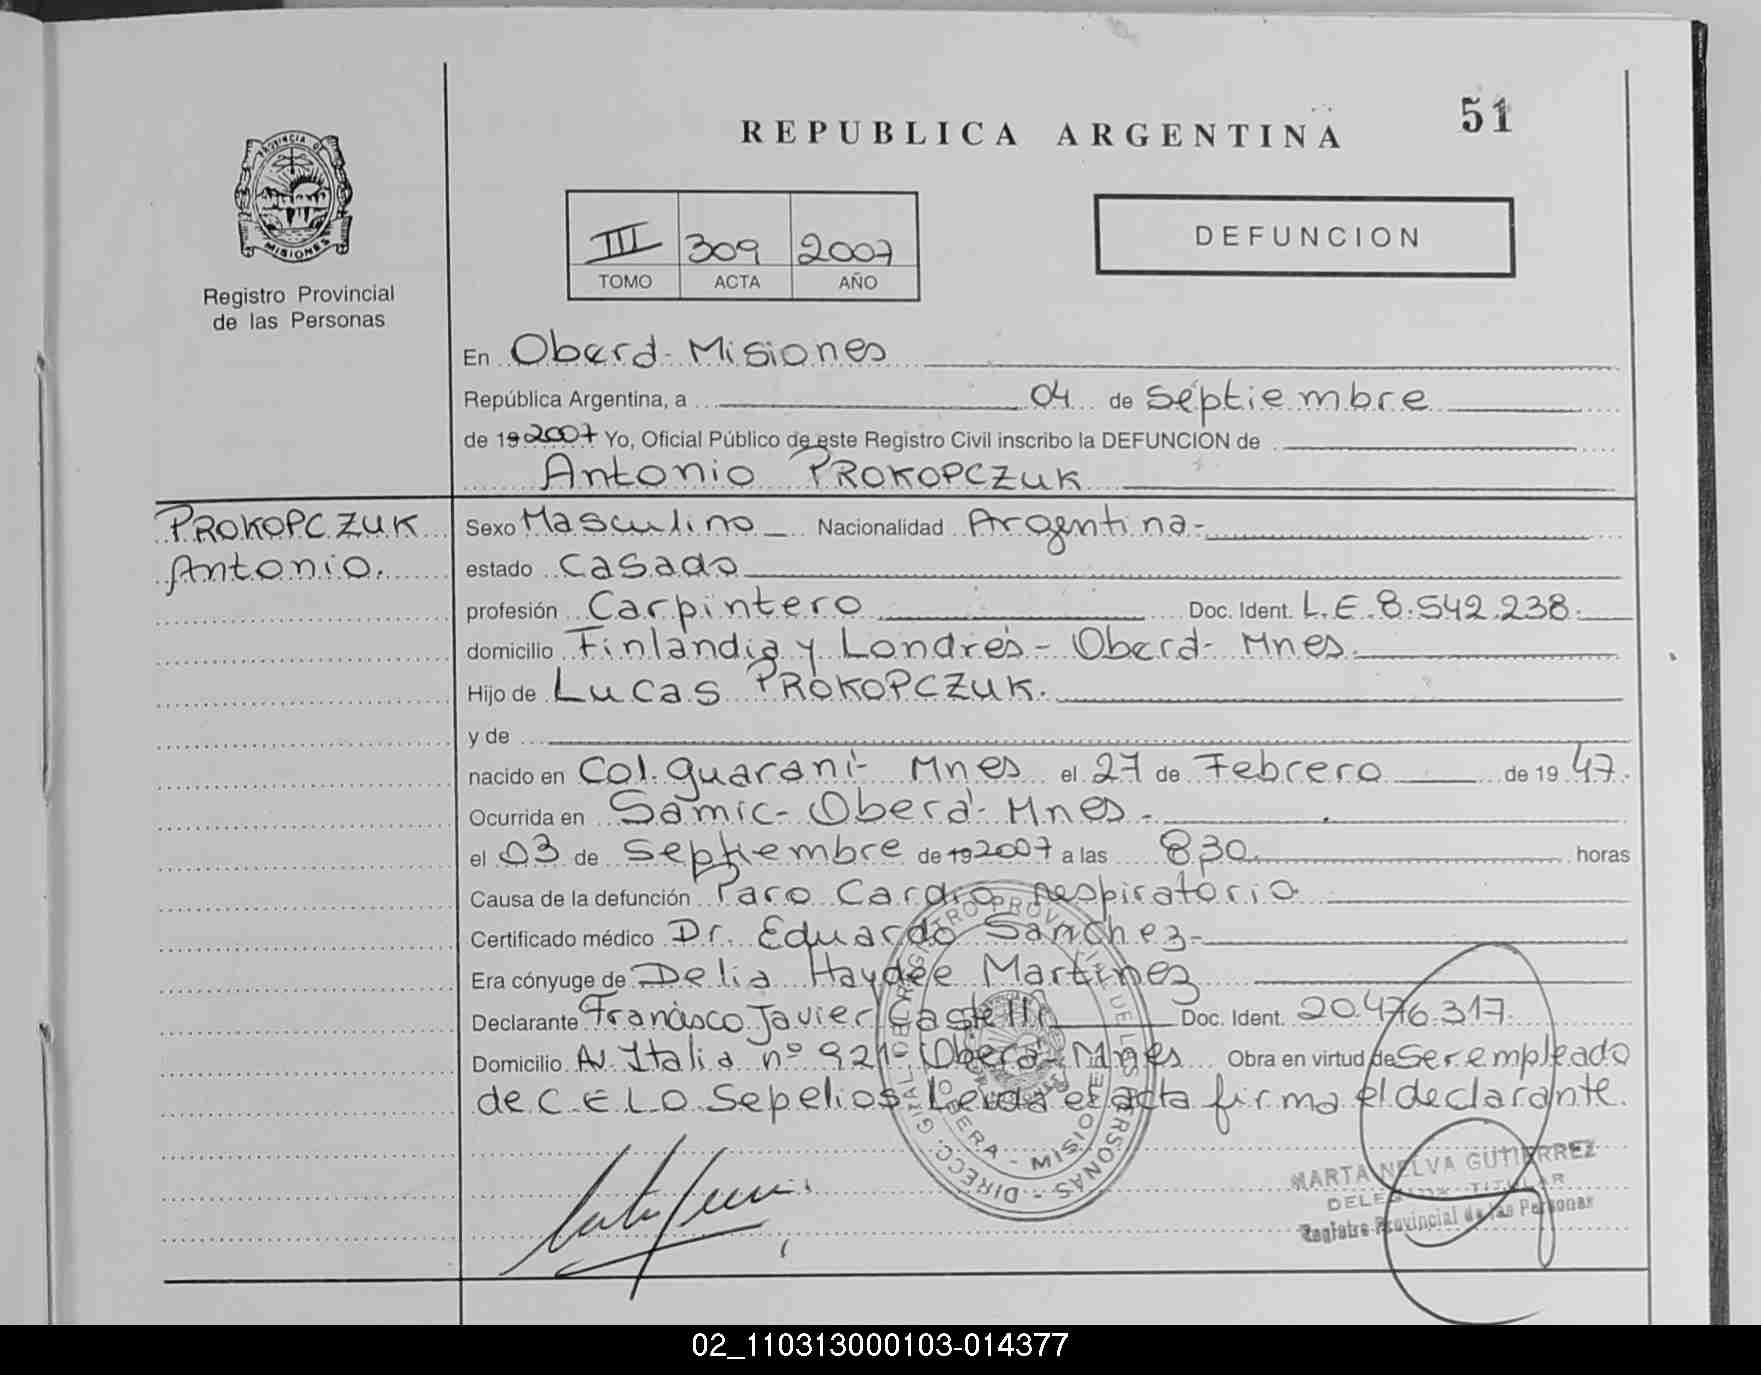 51
REPUBLICA ARGENTINA
PROVINCIA DE
MISIONES
Registro Provincial
de las Personas
III 309 2007
TOMO ACTA AÑO
DEFUNCION
En Oberá - Misiones
República Argentina, a 04 de Septiembre
de 19 2007 Yo, Oficial Público de este Registro Civil inscribo la DEFUNCION de
Antonio PROKOPCZUK
PROKOPCZUK
Antonio.
Sexo Masculino Nacionalidad Argentina-
estado Casado
profesión Carpintero Doc. Ident. L.E.8.542.238.
domicilio Finlandia y Londres - Oberá - Mnes.
Hijo de Lucas PROKOPCZUK.
y de
nacido en Col. Guaraní - Mnes el 27 de Febrero de 19 47.
Ocurrida en Samic - Oberá - Mnes -
el 03 de Septiembre de 19 2007 a las 8,30. horas
Causa de la defunción Paro Cardio respiratorio
Certificado médico Dr. Eduardo Sanchez-
Era cónyuge de Delia Haydée Martinez
Declarante Francisco Javier Castelli Doc. Ident. 20.476.317.
Domicilio Av. Italia nº 921 - Oberá - Mnes Obra en virtud de Ser empleado
de C.E.L.O Sepelios. Leída el acta firma el declarante.
OBERA - MISIONES
MARTA NELVA GUTIERREZ
DELEGADA TITULAR
Registro Provincial de las Personas
02_110313000103-014377